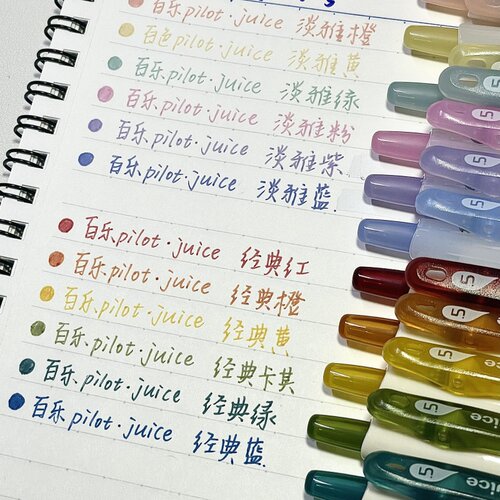 百乐pilot·juice 淡雅橙
百色pilot·juice 淡雅黄
百乐pilot·juice 淡雅绿
百乐pilot·juice 淡雅粉
百乐pilot·juice 淡雅紫
百乐pilot·juice 淡雅蓝
百乐pilot·juice 经典红
百乐pilot·juice 经典橙
百乐pilot·juice 经典黄
百乐pilot·juice 经典卡其
百乐pilot·juice 经典绿
百乐pilot·juice 经典蓝
5
5
5
5
5
5
5
juice
5
juice